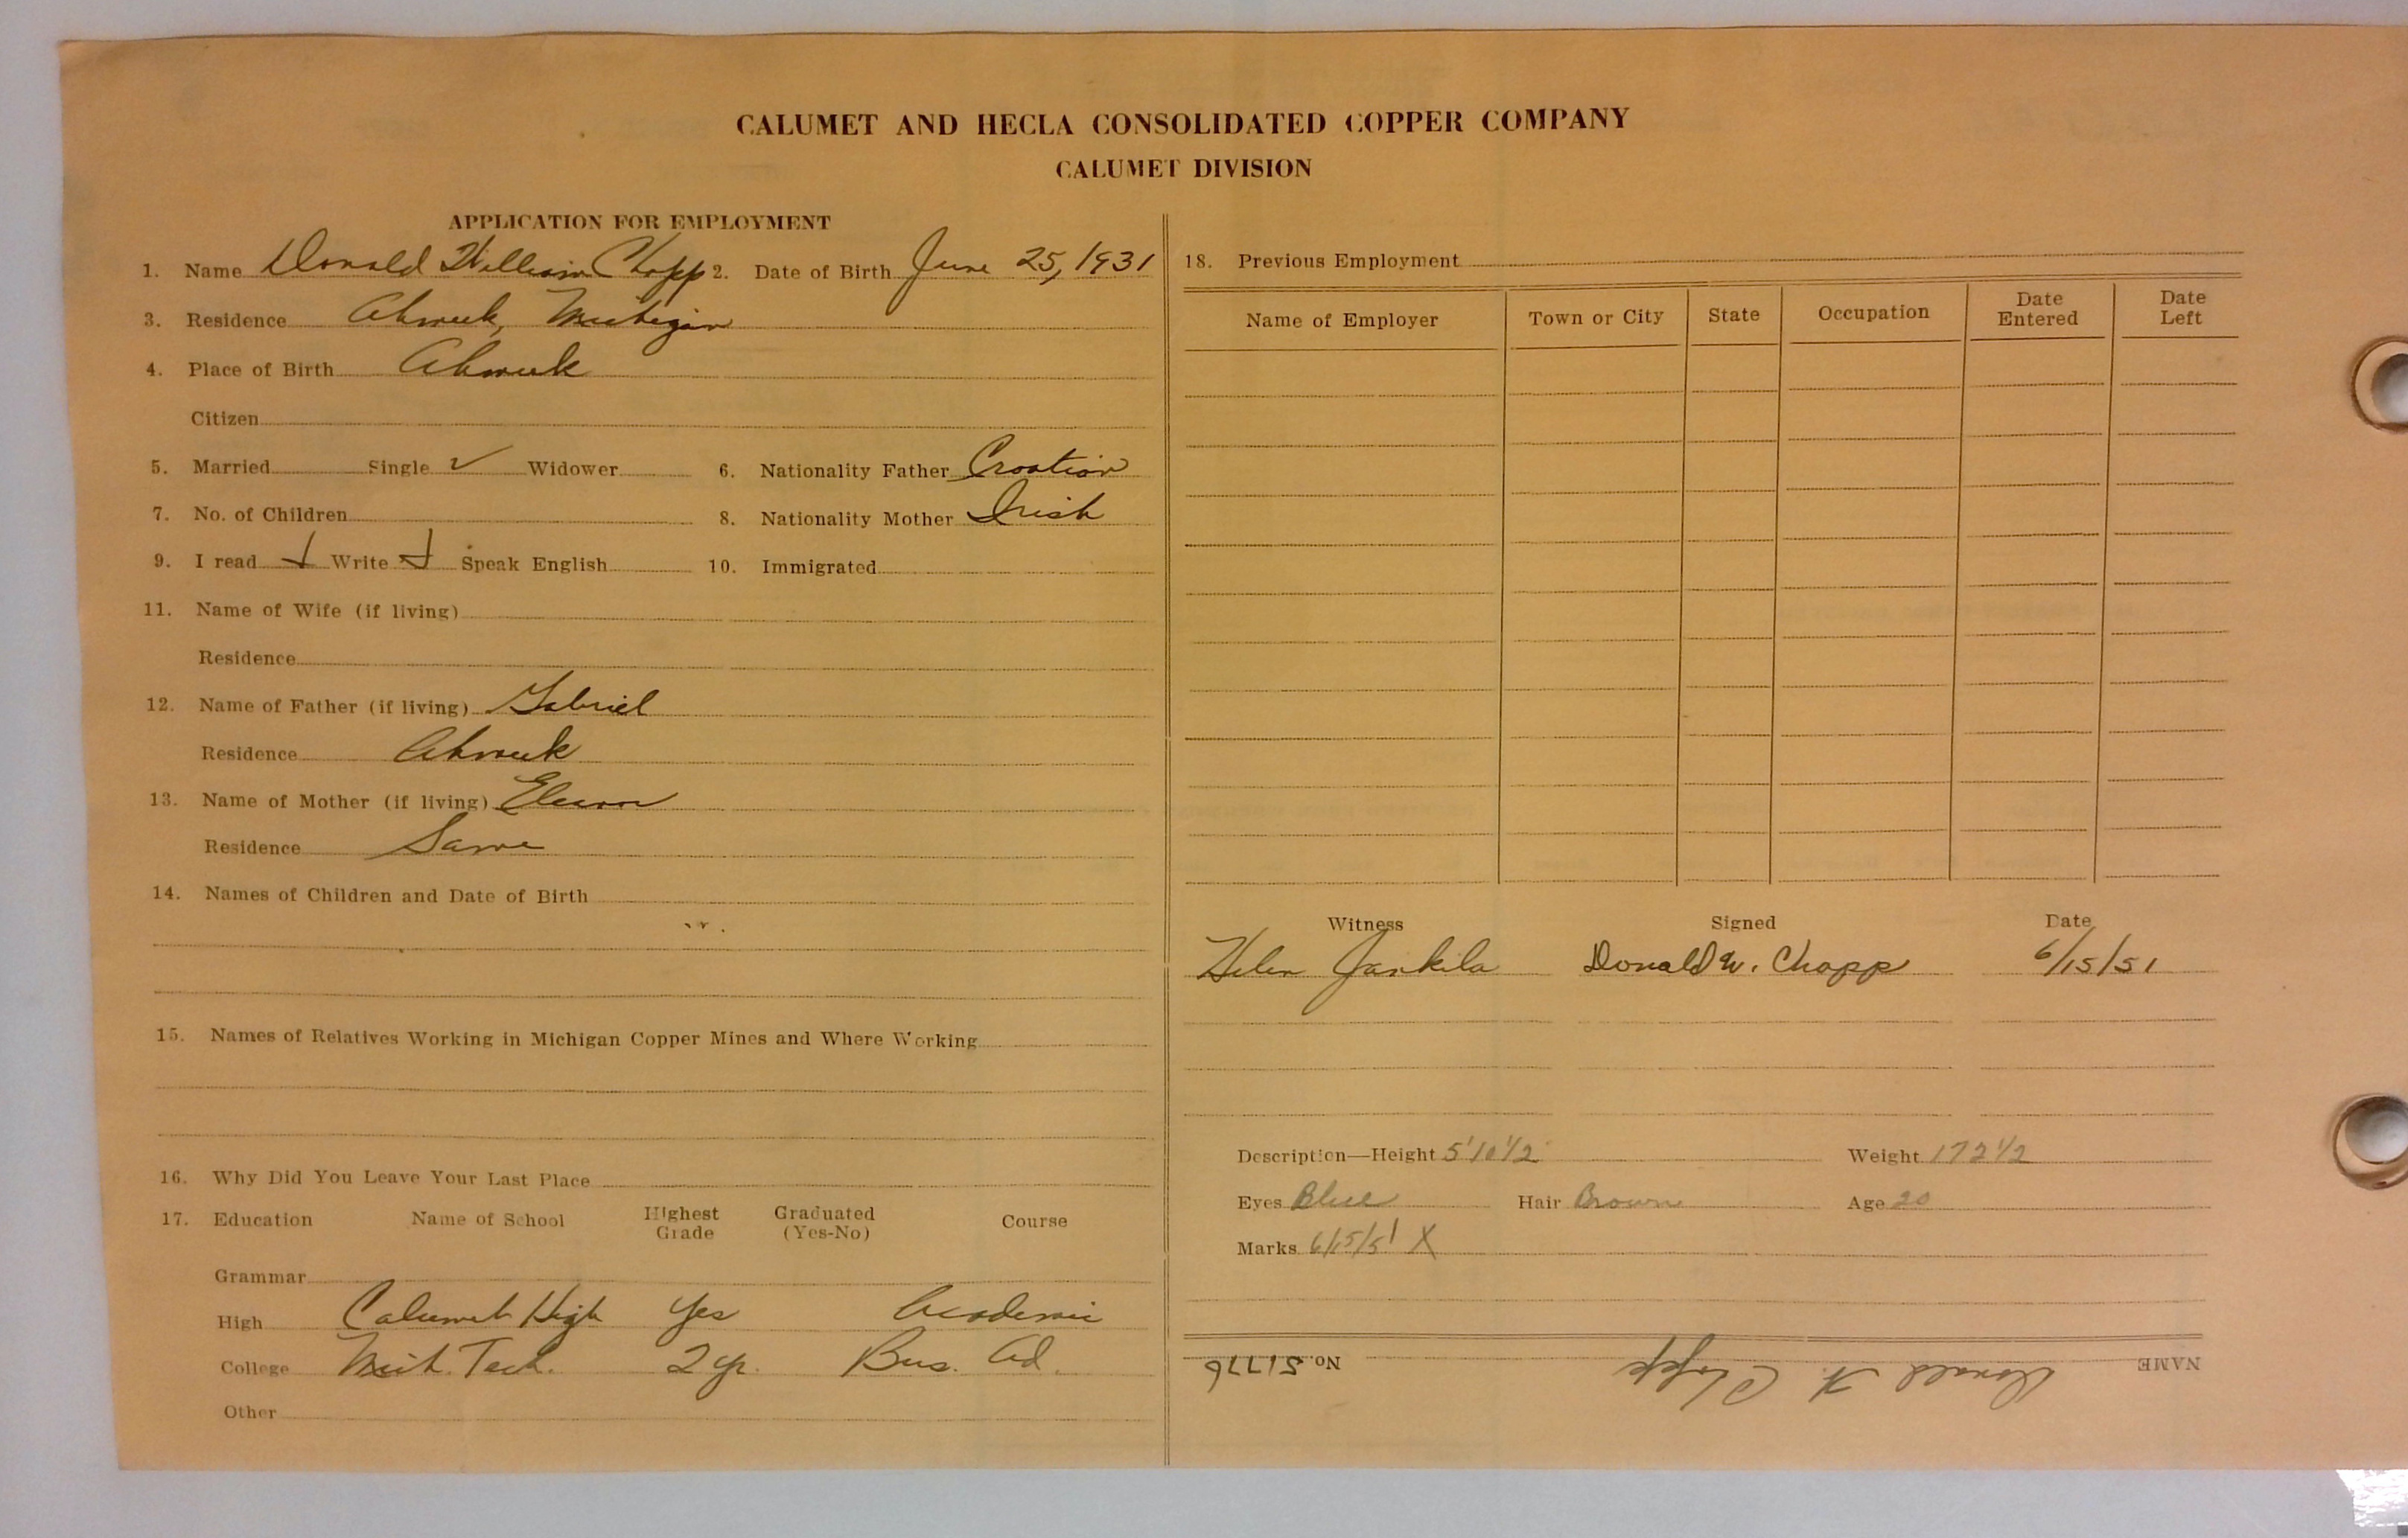 CALUMET AND HECLA CONSOLIDATED COPPER COMPANY
CALUMET DIVISION
APPLICATION FOR EMPLOYMENT
1. Name Donald William Chopp 2. Date of Birth June 25, 1931
3. Residence Ahmeek, Michigan
4. Place of Birth Ahmeek
Citizen
5. Married Single ✓ Widower 6. Nationality Father Croation
7. No. of Children 8. Nationality Mother Irish
9. I read ✓ Write ✓ Speak English 10. Immigrated
11. Name of Wife (if living)
Residence
12. Name of Father (if living) Gabriel
Residence Ahmeek
13. Name of Mother (if living)
Residence Same
14. Names of Children and Date of Birth
15. Names of Relatives Working in Michigan Copper Mines and Where Working
16. Why Did You Leave Your Last Place
17. Education Name of School Highest Grade Graduated (Yes-No) Course
Grammar
High Calumet High Yes Academic
College Mich. Tech. 2 yr. Bus. Ad.
Other
18. Previous Employment
Name of Employer Town or City State Occupation Date Entered Date Left
Witness Signed Date
Helen Jankila Donald W. Chopp 6/15/51
Description—Height 5'10 1/2 Weight 172 1/2
Eyes Blue Hair Brown Age 20
Marks 6/15/51 X
NAME Donald W. Chopp No. 51776